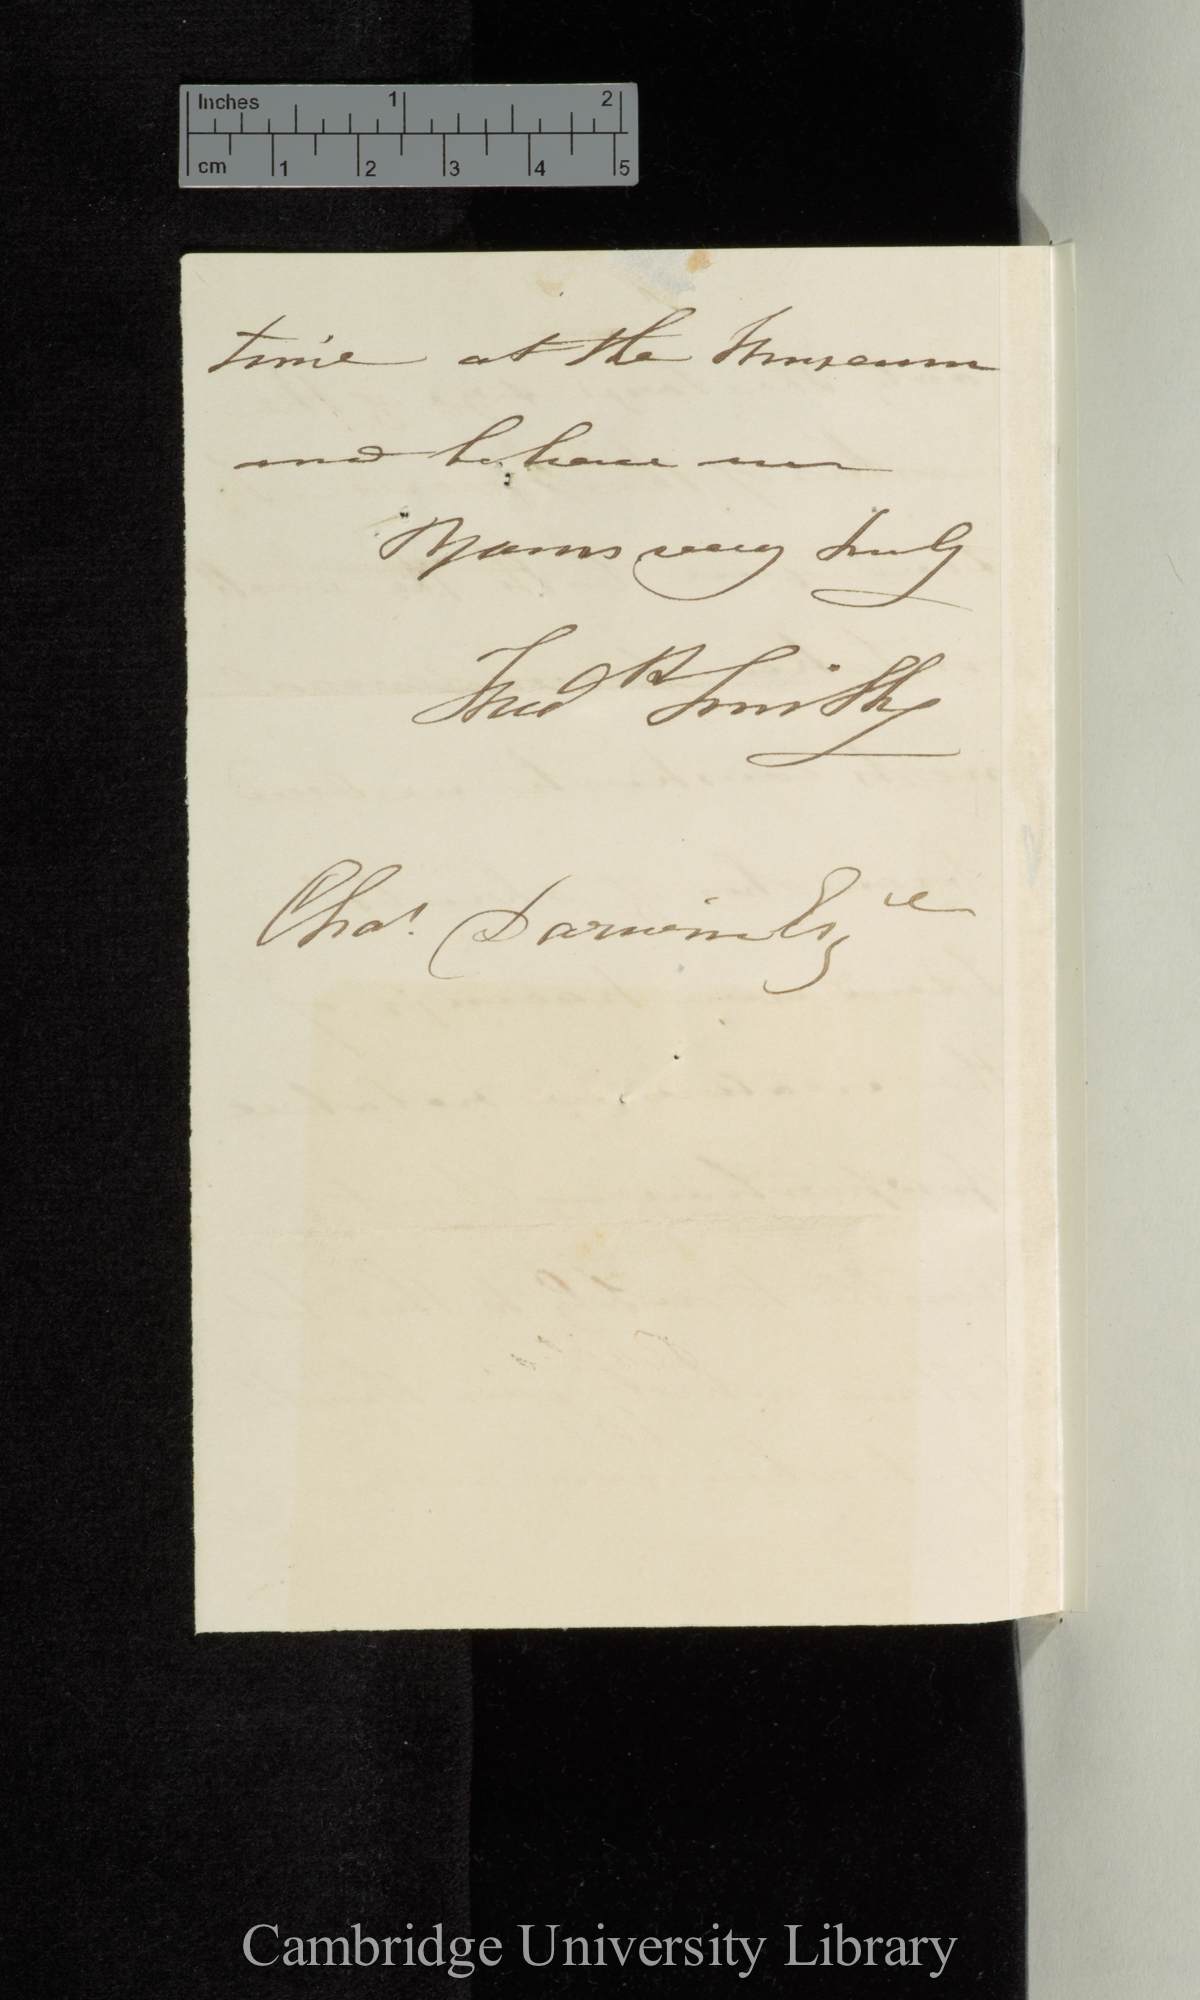 Inches 1 2
cm 1 2 3 4 5
time at the Museum
and believe me
Yours very truly
Fredk Smith
Chas. Darwin Esqre
Cambridge University Library